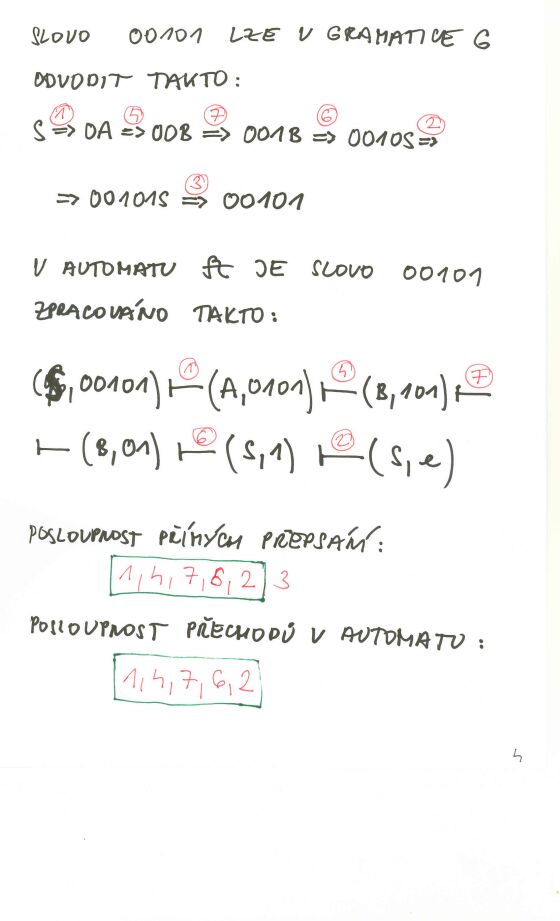 SLOVO 00101 LZE V GRAMATICE G
ODVODIT TAKTO:
S ①⇒ 0A ④⇒ 00B ⑦⇒ 001B ⑥⇒ 0010S ②⇒
⇒ 00101S ③⇒ 00101
V AUTOMATU JE SLOVO 00101
ZPRACOVÁNO TAKTO:
(S, 00101) ①⊢ (A, 0101) ④⊢ (B, 101) ⑦⊢
⊢ (B, 01) ⑥⊢ (S, 1) ②⊢ (S, e)
POSLOUPNOST PŘÍMÝCH PŘEPSÁNÍ:
1, 4, 7, 6, 2 3
POSLOUPNOST PŘECHODŮ V AUTOMATU:
1, 4, 7, 6, 2
4